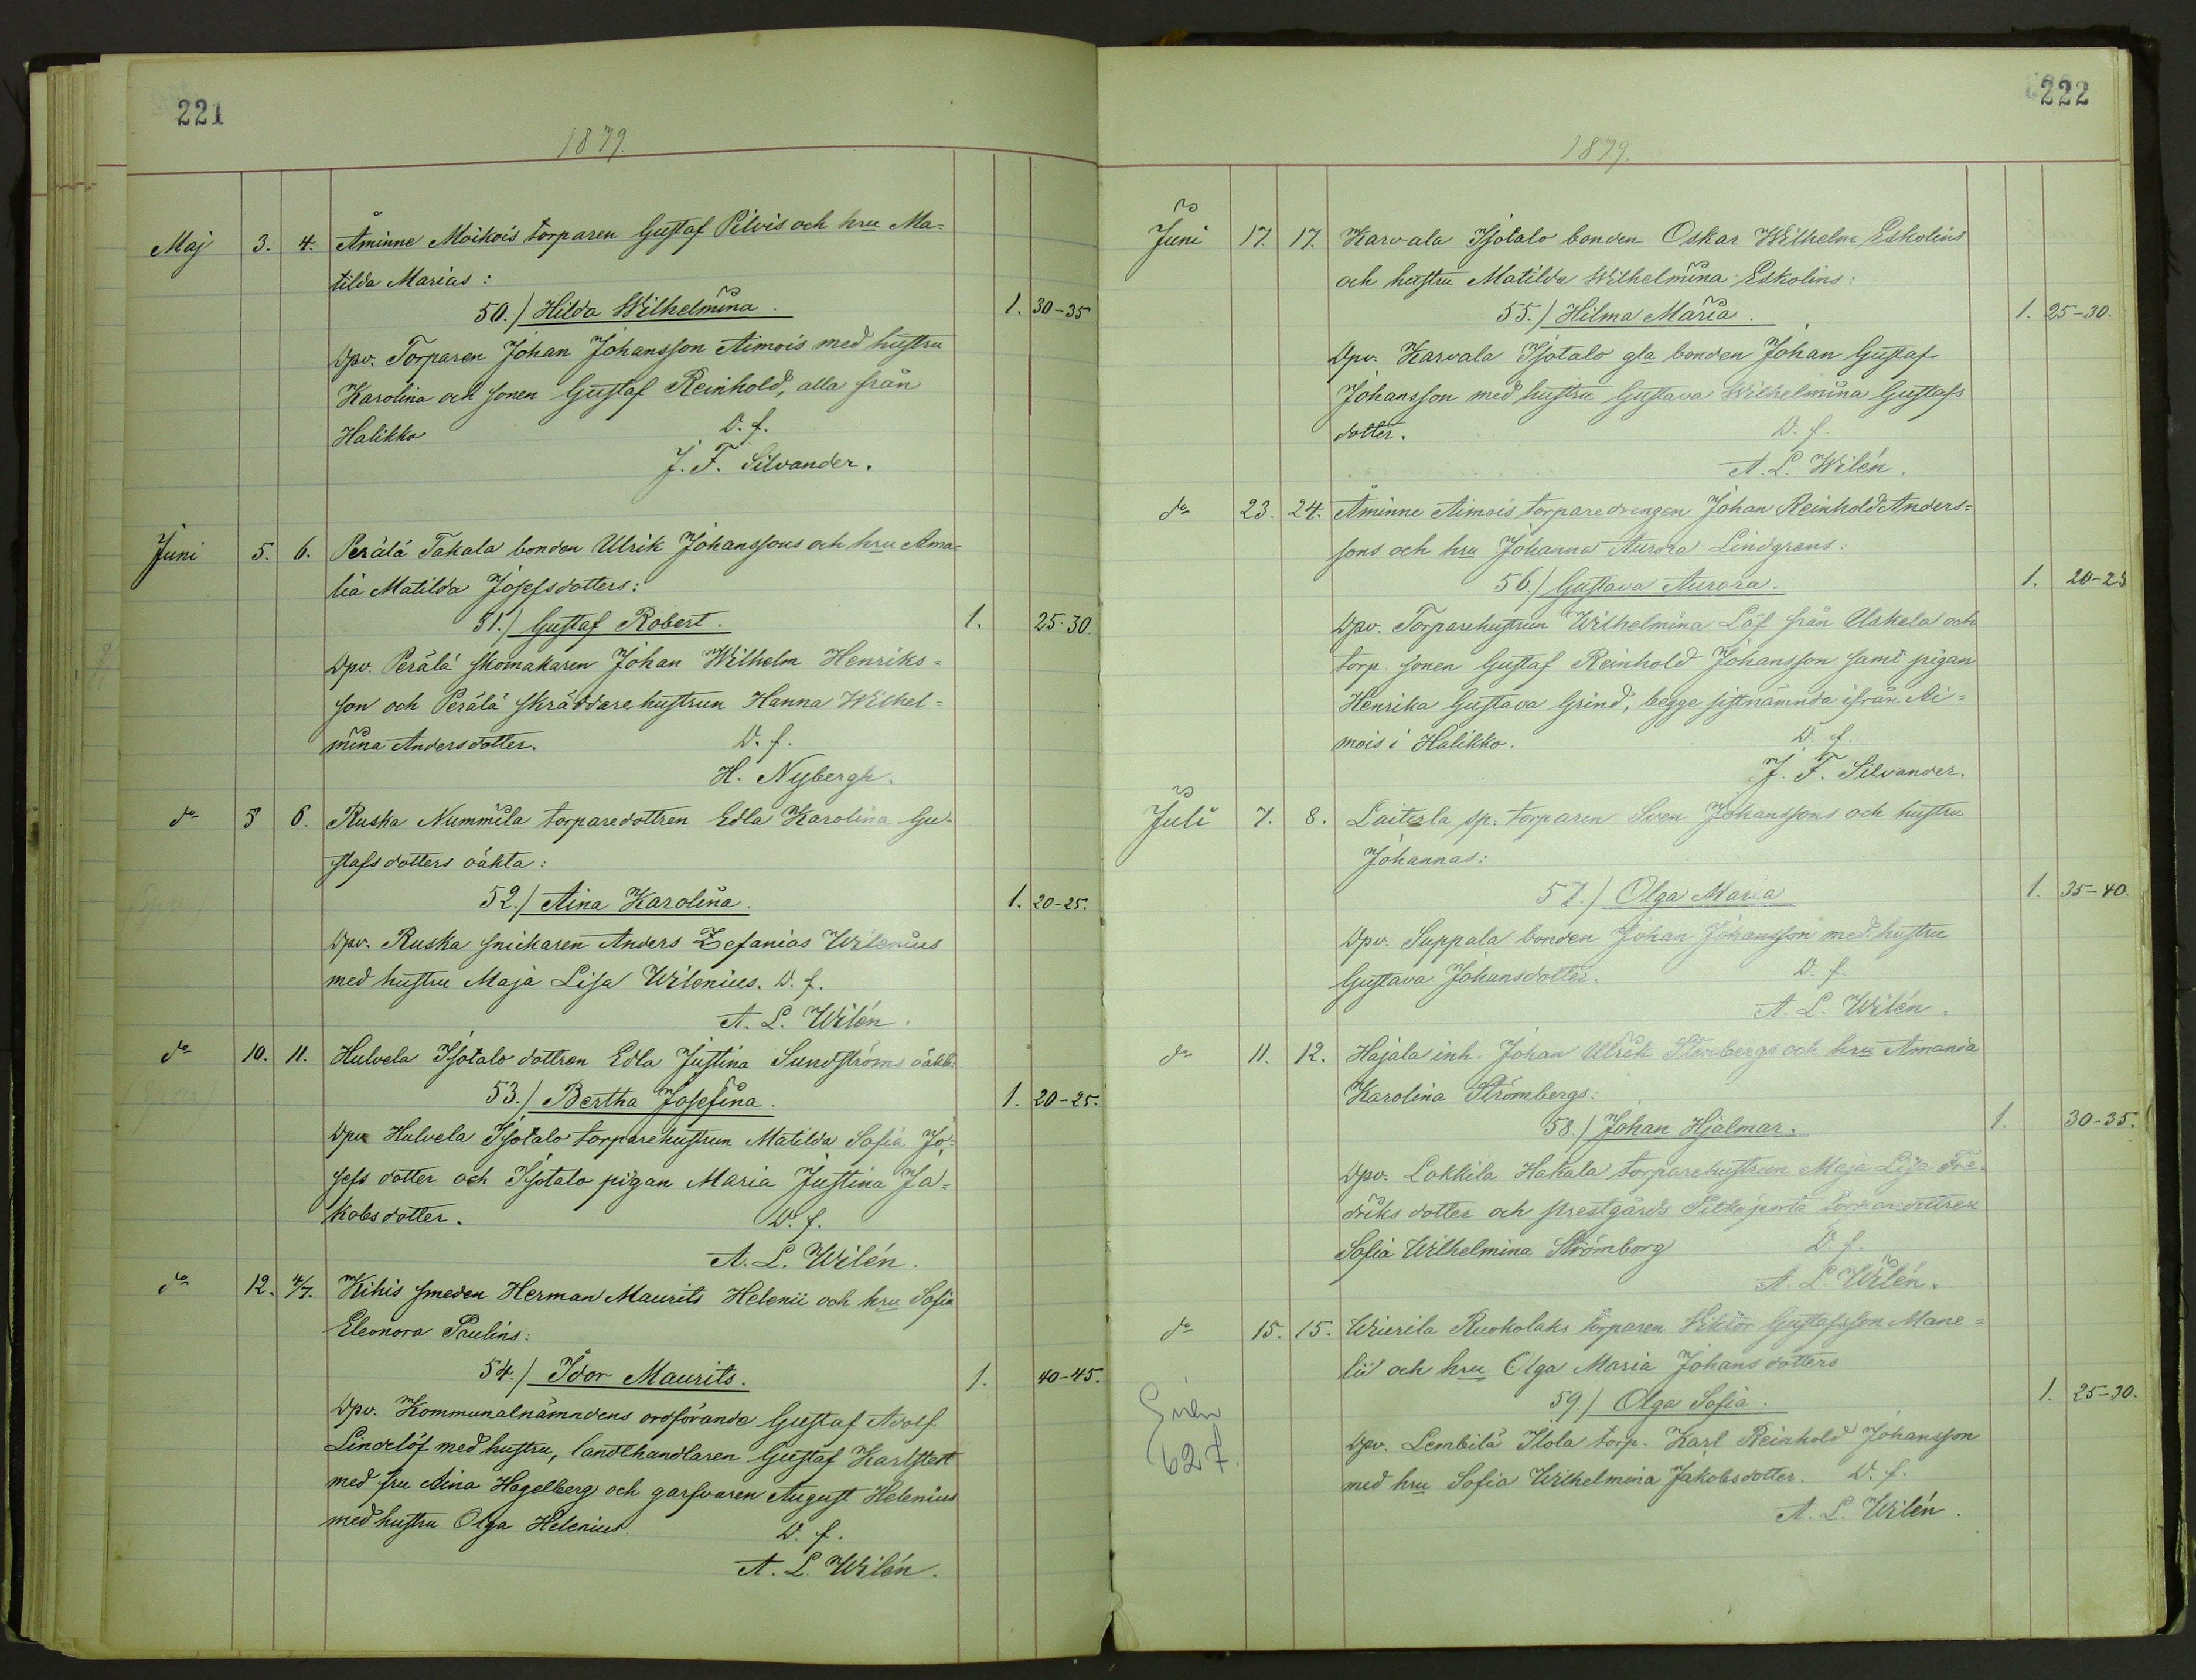 221
1879.
Maj 3. 4. Åminne Moikois torparen Gustaf Pilvis och hru Ma=
tilda Marias:
50.) Hilda Wilhelmina. 1. 30-35
Dpv. Torparen Johan Johansson Aimois med hustru
Karolina och sonen Gustaf Reinhold, alla från
Halikko D. f.
J. F. Silvander.
Juni 5. 6. Perälä Takala bonden Ulrik Johanssons och hru Ama=
lia Matilda Josefsdotters:
51.) Gustaf Robert. 1. 25-30.
Dpv. Perälä skomakaren Johan Wilhelm Henriks=
son och Perälä skräddarehustrun Hanna Wilhel=
mina Andersdotter. D. f.
H. Nybergh.
do 5 6. Ruska Nummila torparedottren Edla Karolina Gu=
stafsdotters oäkta:
52.) Aina Karolina. 1. 20-25.
Dpv. Ruska snickaren Anders Zefanias Wilenius
med hustru Maja Lisa Wilenius. D. f.
A. L. Wilén.
do 10. 11. Hulvela Isotalo dottren Edla Justina Sundströms oäkta:
53.) Bertha Josefina. 1. 20-25.
Dpv Hulvela Isotalo torparehustrun Matilda Sofia Jo=
sefs dotter och Isotalo pigan Maria Justina Ja=
kobsdotter. D. f.
A. L. Wilén.
do 12. 4/7. Kihis smeden Herman Maurits Helenii och hru Sofia
Eleonora Paulins:
54.) Idor Maurits. 1. 40-45.
Dpv. Kommunalnämndens ordförande Gustaf Adolf
Lindelöf med hustru, landthandlaren Gustaf Karlstedt
med fru Aina Hagelberg och garfvaren August Helenius
med hustru Olga Helenius. D. f.
A. L. Wilén.
222
1879.
Juni 17. 17. Karvala Isotalo bonden Oskar Wilhelm Eskolins
och hustru Matilda Wilhelmina Eskolins:
55.) Hilma Maria. 1. 25-30.
Dpv. Karvala Isotalo gla bonden Johan Gustaf
Johansson med hustru Gustava Wilhelmina Gustafs
dotter. D. f.
A. L. Wilén.
do 23. 24. Åminne Aimois torparedrengen Johan Reinhold Anders=
sons och hru Johanna Aurora Lindgrens:
56.) Gustava Aurora. 1. 20-25
Dpv. Torparehustrun Wilhelmina Löf från Uskela och
torp. sonen Gustaf Reinhold Johansson samt pigan
Henrika Gustava Grind, begge sistnämnda ifrån Ai=
mois i Halikko. D. f.
J. F. Silvander.
Juli 7. 8. Laiterla sp. torparen Sven Johanssons och hustru
Johannas:
57.) Olga Maria 1. 35-40.
Dpv. Suppala bonden Johan Johansson med hustru
Gustava Johansdotter. D. f.
A. L. Wilén.
do 11. 12. Hajala inh. Johan Ulrik Stenbergs och hru Amanda
Karolina Strömbergs:
58.) Johan Hjalmar. 1. 30-35.
Dpv. Lokkila Hakala torparehustrun Maja Lisa Fre=
driks dotter och prestgårds torparedottren
Sofia Wilhelmina Strömborg D. f.
A. L. Wilén.
do 15. 15. Wiurila Ruokolaks torparen Viktor Gustafsson Mane=
lii och hru Olga Maria Johansdotters
59.) Olga Sofia. 1. 25-30.
Dpv. Lembilä Ilola torp. Karl Reinhold Johansson
med hru Sofia Wilhelmina Jakobsdotter. D. f.
A. L. Wilén.
627.